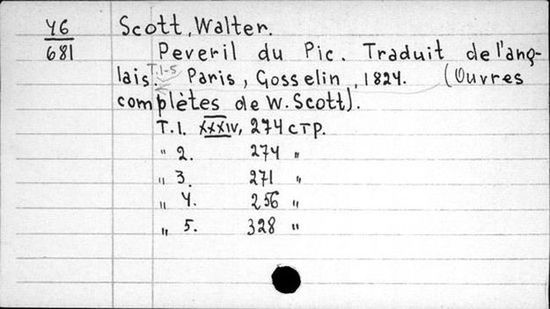 У6 Scott, Walter.
681 Peveril du Pic. Traduit de l'ang-
T.1-5
lais. Paris, Gosselin, 1824. (Ouvres
complètes de W. Scott).
T.1. XXXIV, 274 стр.
" 2. 274 "
" 3. 271 "
" 4. 256 "
" 5. 328 "